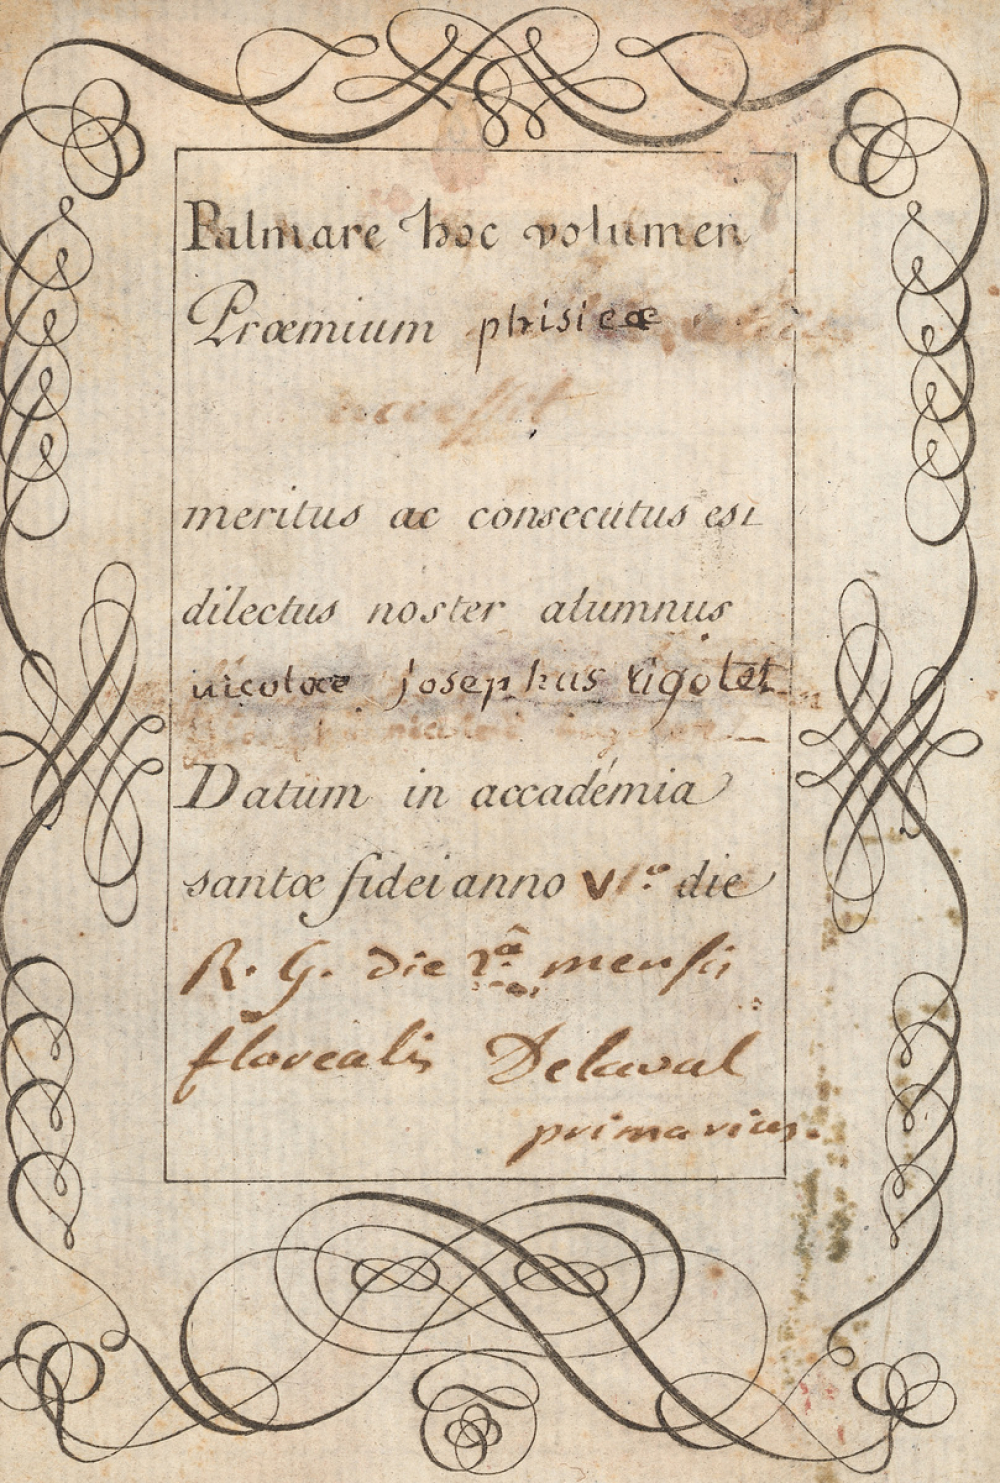 Palmare hoc volumen
Præmium phisicæ
accessit
meritus ac consecutus est
dilectus noster alumnus
nicolaæ josephus rigolet
Datum in accadémia
santæ fidei anno V1.º die
R. G. die 2.â mensis
florealis Delaval
primarius.